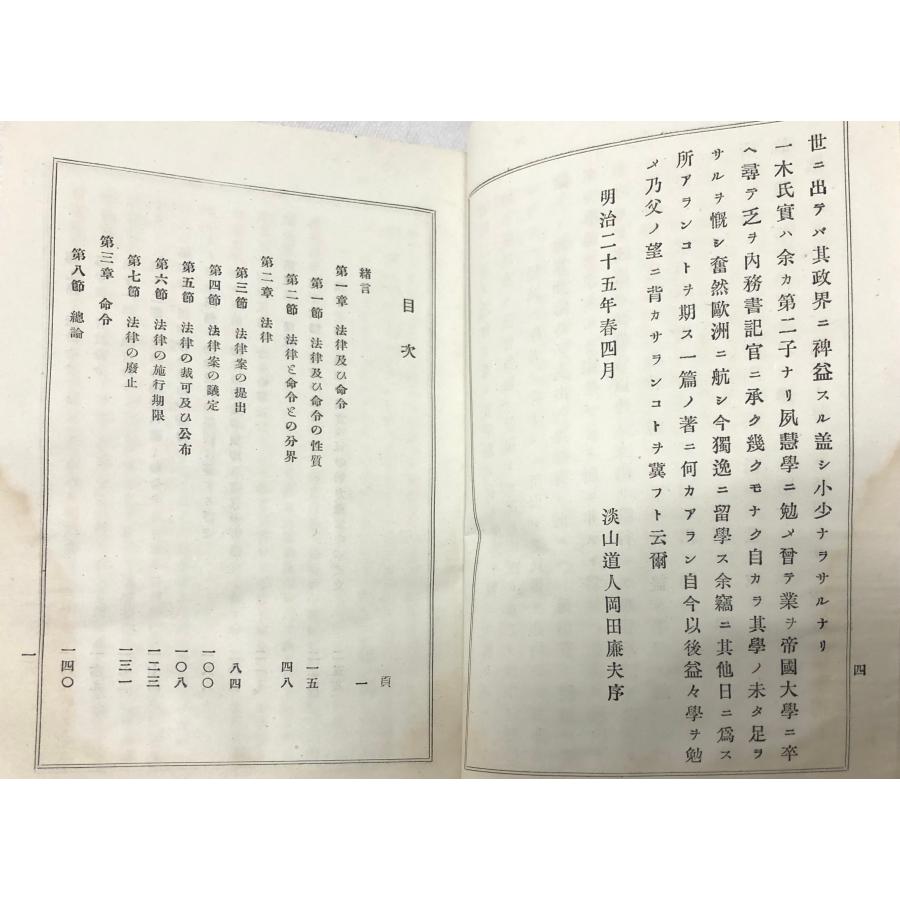 世ニ出テバ其政界ニ裨益スル盖シ小少ナラサルナリ
一木氏實ハ余カ第二子ナリ夙慧學ニ勉メ曾テ業ヲ帝國大學ニ卒
ヘ尋テ乏ヲ內務書記官ニ承ク幾クモナク自カラ其學ノ未タ足ラ
サルヲ慨シ奮然歐洲ニ航シ今獨逸ニ留學ス余竊ニ其他日ニ爲ス
所アランコトヲ期ス一篇ノ著ニ何カアラン自今以後益々學ヲ勉
メ乃父ノ望ニ背カサランコトヲ冀フト云爾
明治二十五年春四月
淡山道人岡田廉夫序
四
目次
頁
緖言 一
第一章 法律及ひ命令
第一節 法律及ひ命令の性質 一五
第二節 法律と命令との分界 四八
第二章 法律
第三節 法律案の提出 八四
第四節 法律案の議定 一〇〇
第五節 法律の裁可及ひ公布 一〇八
第六節 法律の施行期限 一二三
第七節 法律の廢止 一三一
第三章 命令
第八節 總論 一四〇
一